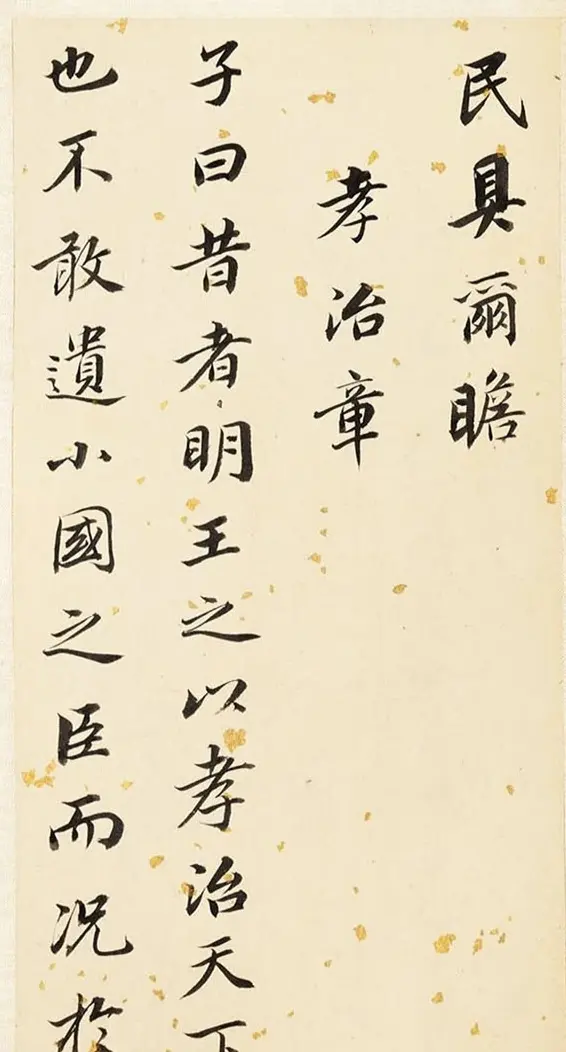 民具爾瞻
孝治章
子曰昔者明王之以孝治天下
也不敢遺小國之臣而況於